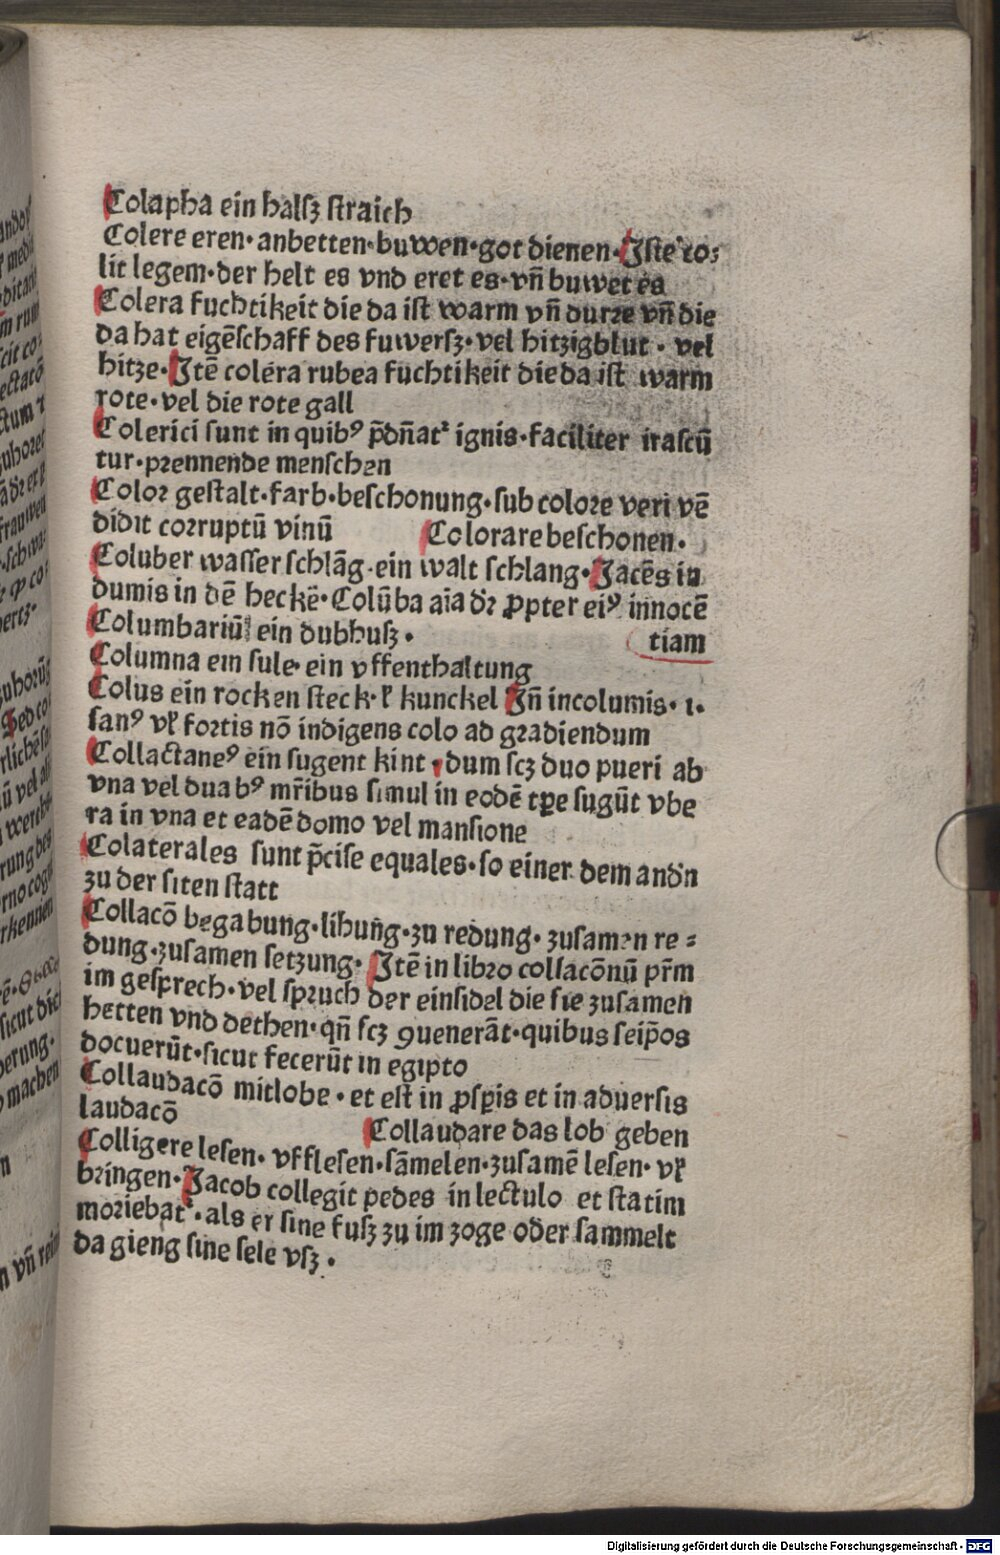 Colapha ein halſz ſtraich
Colere eren·anbetten·buwen·got dienen·Iſte co⸗
lit legem·der helt es vnd eret es·vn̄ buwet es
Colera fuchtikeit die da iſt warm vn̄ durꝛe vn̄ die
da hat eigēſchaff des fuwerſz·vel hitzigblut·vel
hitze·Itē colera rubea fuchtikeit die da iſt warm
rote·vel die rote gall
Colerici ſunt in quibꝰ p̄dn̄at᷑ ignis·faciliter iraſcū
tur·pꝛennende menſchen
Coloꝛ geſtalt·farb·beſchonung·ſub coloꝛe veri vē
didit coꝛruptū vinū Colorare beſchonen·
Coluber waſſer ſchlāg·ein walt ſchlang·Jacēs in
dumis in dē heckē·Colūba aīa dꝛ ꝓpter eiꝰ innocē
tiam
Columbariū ein dubhuſz·
Columna ein ſule·ein vffenthaltung
Colus ein rocken ſteck·ꝉ kunckel In̄ incolumis·ı·
ſanꝰ vꝉ foꝛtis nō indigens colo ad gꝛadiendum
Collactaneꝰ ein ſugent kint·dum ſcꝫ duo pueri ab
vna vel duabꝰ mr̄ibus ſimul in eodē tꝑe ſugūt vbe
ra in vna et eadē domo vel manſione
Colaterales ſunt p̄ciſe equales·ſo einer dem andn̄
zu der ſiten ſtatt
Collacō begabung·lihung·zu redung·zuſamen re⸗
dung·zuſamen ſetzung·Itē in libꝛo collacōnū pr̄m
im geſprech·vel ſpꝛuch der einſidel die ſie zuſamen
hetten vnd dethen·qn̄ ſcꝫ ꝯuenerāt·quibus ſeip̄os
docuerūt·ſicut fecerūt in egipto
Collaudacō mitlobe·et eſt in ꝓſꝑis et in aduerſis
laudacō Collaudare das lob geben
Colligere leſen·vffleſen·ſāmelen·zuſamē leſen·vꝉ
bꝛingen·Jacob collegit pedes in lectulo et ſtatim
moꝛiebat᷑·als er ſine fuſz zu im zoge oder ſammelt
da gieng ſine ſele vſz·
Digitalisierung gefördert durch die Deutsche Forschungsgemeinschaft - DFG